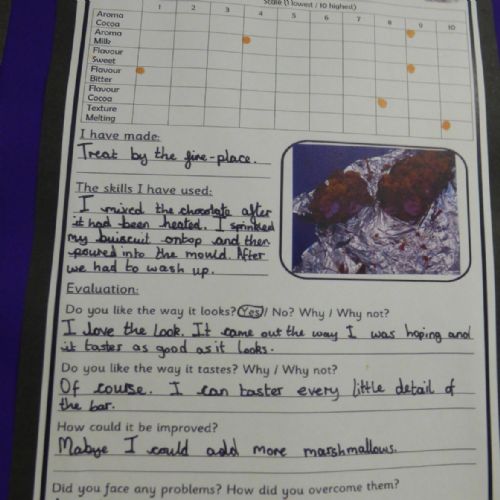 Scale (1 lowest / 10 highest)
1 2 3 4 5 6 7 8 9 10
Aroma
Cocoa
Aroma
Milk
Flavour
Sweet
Flavour
Bitter
Flavour
Cocoa
Texture
Melting
I have made:
Treat by the fire-place.
The skills I have used:
I mixed the chocolate after
it had been heated. I sprinkled
my buiscuit ontop and then
poured into the mould. After
we had to wash up.
Evaluation:
Do you like the way it looks? Yes / No? Why / Why not?
I love the look. It came out the way I was hoping and
it tastes as good as it looks.
Do you like the way it tastes? Why / Why not?
Of course. I can taster every little detail of
the bar.
How could it be improved?
Mabye I could add more marshmallows.
Did you face any problems? How did you overcome them?